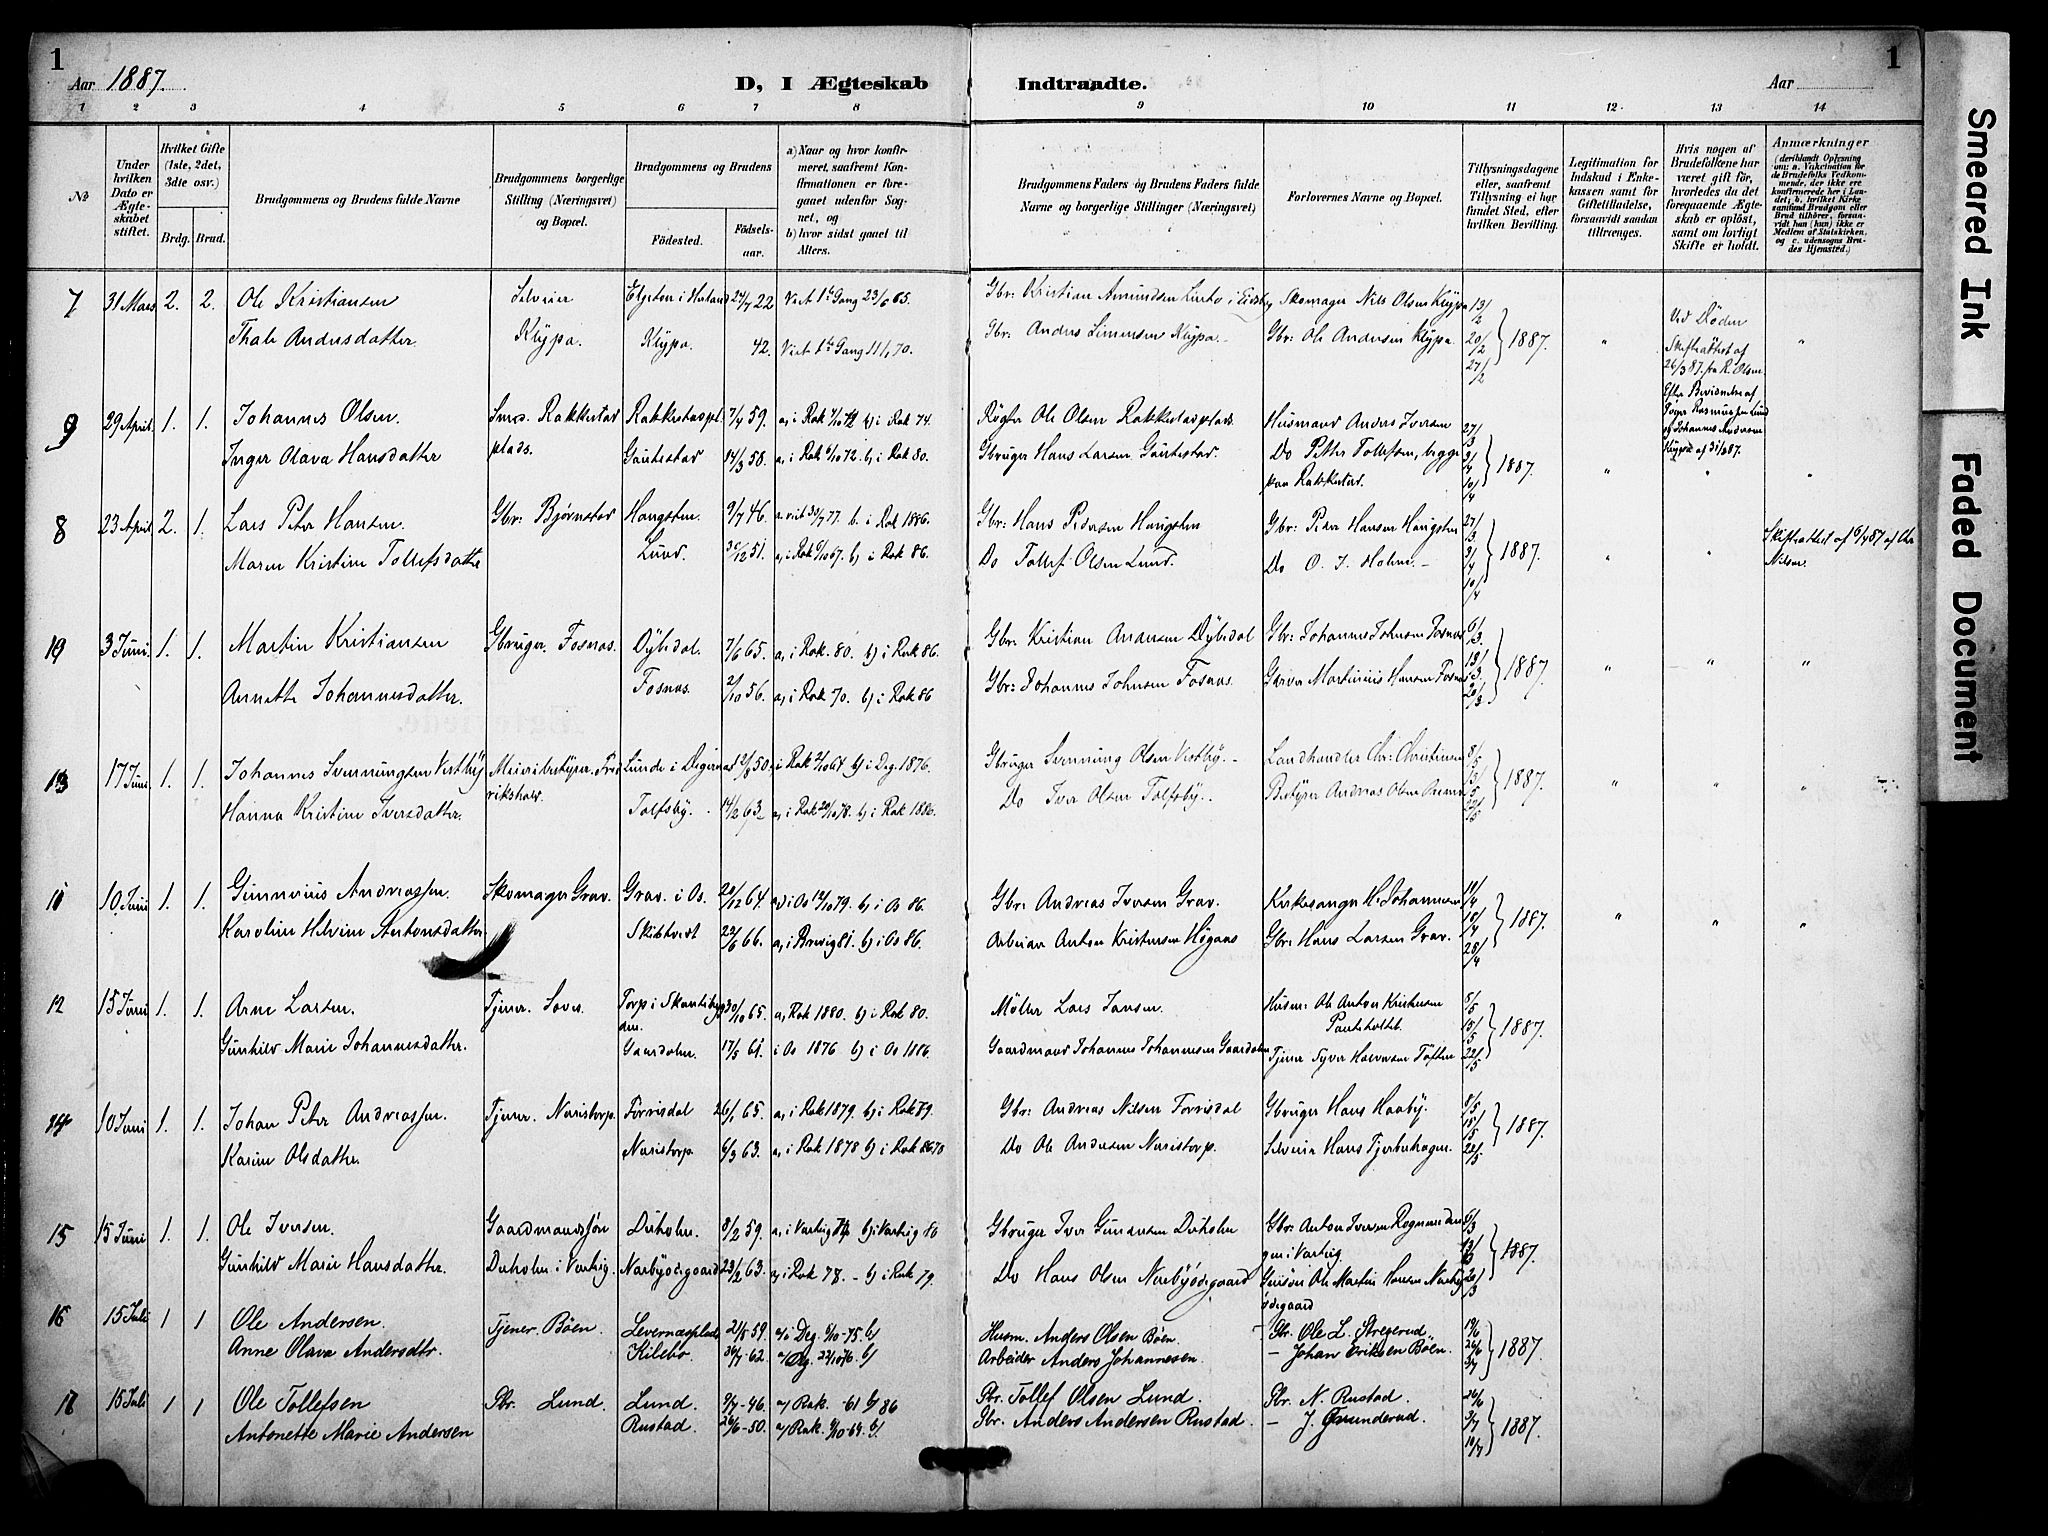 1
Aar 1887.
D, I Ægteskab Indtraadte.
Aar
1
1 2 3 4 5 6 7 8 9 10 11 12 13 14
№
Under hvilken Dato er Ægteskabet stiftet.
Hvilket Gifte (1ste, 2det, 3die osv.)
Brdg. Brud.
Brudgommens og Brudens fulde Navne
Brudgommens borgerlige Stilling (Næringsvei) og Bopæl.
Brudgommens og Brudens
Fødested. Fødselsaar.
a) Naar og hvor konfirmeret, saafremt Konfirmationen er foregaaet udenfor Sognet, og
b) hvor sidst gaaet til Alters.
Brudgommens Faders og Brudens Faders fulde Navne og borgerlige Stillinger (Næringsvei)
Forlovernes Navne og Bopæl.
Tillysningsdagene eller, saafremt Tillysning ei har fundet Sted, efter hvilken Bevilling.
Legitimation for Indskud i Enkekassen samt for Giftetilladelse, forsaavidt saadan tiltrænges.
Hvis nogen af Brudefolkene har været gift før, hvorledes da det foregaaende Ægteskab er opløst, samt om lovligt Skifte er holdt.
Anmærkninger
(deriblandt Oplysning om: a. Vakcination for de Brudefolks Vedkommende, der ikke ere konfirmerede her i Landet; b. hvilket Kirkesamfund Brudgom eller Brud tilhører, forsaavidt han (hun) ikke er Medlem af Statskirken, og c. udensogns Brudes Hjemsted.)
7 31 Mars 2. 2. Ole Kristiansen Selveier 24/7 22 Viet 1ste Gang 23/6 65. Gbr: Kristian Amundsen Skomager Nils Olsen Klypa 13/2
Thale Andersdatter Klypa. Klypa. 42. Viet 1ste Gang 11/1 70. Gbr: Anders Simensen Klypa. Gbr: Ole Andersen Klypa. 20/2 27/2 1887. " Ved Døden "
Skifteattest af 26/3 87. fra R. Olsen.
9 29 April. 1. 1. Johannes Olsen. Rakkestad Rakkestadpl. 7/4 59. Ole Olsen Rakkestadplads. Husmand Anders Iversen 27/3
Inger Olava Hansdatter plads. Gautestad 14/3 58. a, i Rak 6/10 72. b, i Rak 80. Gbruger Hans Larsen Gautestad. Do Petter Tollefsen, begge 3/4 1887. " " "
paa Rakkestad. 10/4
8 23 April 2. 1. Lars Peter Hansen. Gbr: Bjørnstad Haugsten. 9/7 46. b. i Rak 1886. Gbr: Hans Pedersen Haugsten Gbr: Peder Hansen Haugsten 27/3
Maren Kristine Tollefsdatter Lund. 30/12 51. b) i Rak 86. Do Tollef Olsen Lund. Do O. J. Holme. 3/4 10/4 1887. " " Skifteattest af 6/4 87 af Chr Nilsen.
19 3 Juni. 1. 1. Martin Kristiansen Gbruger. Fosnæs. Dybedal. 7/6 65. a, i Rak. 80. b) i Rak 86. Gbr: Kristian Andersen Dybedal Gbr: Johannes Johnsen Fosnæs 6/3
Annette Johannesdatter. Fosnæs. 2/10 56. a, i Rak 70. b) i Rak 86 Gbr: Johannes Johnsen Fosnæs Martinius Hansen Fosnæs 13/3 20/3 1887. " " "
13 17 Juni 1. 1. Johannes Svenningsen Vestby Meieribestyrer. Fred Lunde i Degernæs 12/3 50. i Rak 2/10 64 b) i Deg. 1876. Gbruger Svenning Olsen Vestby. Landhandler Chr: Christiansen 8/5
Hanna Kristine Iversdatter. rikshald. Tolfsby. 14/2 63. a, i Rak 20/10 78. b) i Rak 1886. Do Iver Olsen Tolfsby. Bestyrer Andreas Olsen 15/5 22/5 1887. " " "
11 10 Juni 1. 1. Gunnerius Andreassen. Skomager Grav. Grav. i Os. 20/12 64. a) i Os 12/10 79. b) i Os 86. Gbr: Andreas Iversen Grav. Kirkesanger H. Johannesen 11/4
Karoline Helvine Antonsdatter Skibtvedt 22/6 66. 81. b) i Os 86. Arbeider Anton Kristensen Høgaas Gbr: Hans Larsen Grav. 18/4 25/4 1887. " " "
12 15 Juni 1. 1. Arne Larsen. Tjener. Torp i 30/10 65. a, Rak 1880. b) i Rak 80. Møller Lars Jansen. Husm: Ole Anton Kristensen 8/5
Gunhild Marie Johannesdatter. Gaardholm. 17/5 61. i Os 1876 b) i Os 1886. Gaardmand Johannes Johannesen Gaardholm Tjener Syver Halvorsen Toften 15/5 22/5 1887.
14 10 Juni 1. 1. Johan Peter Andreassen. Tjener. Naristorp. Forrisdal 26/1 65. a, i Rak 1879. b) i Rak 79. Gbr: Andreas Nilsen Forrisdal Gbruger Hans Haaby. 8/5
Karine Olsdatter. Naristorp 6/3 63. a, i Rak 1878 b) i Rak Do Ole Andersen Naristorp. Selveier Hans 15/5 22/5 1887.
15 15 Juni 1. 1. Ole Iversen. Gaardmandssøn Dirholm. 8/2 59. a, i Varteig b) i Varteig 80 Gbruger Iver Gundersen Dirholm Gbr: Anton Iversen 6/3
Gunhild Marie Hansdatter. Dirholm i Varteig. Narbyødegaard 23/2 63. a, i Rak 78. b) i Rak 79. Do Hans Olsen Narbyødegaard Ole Martin Hansen Narby 13/3 20/3 1887.
ødegaard
16 15 Juli 1 1 Ole Andersen. Tjener. Böen. 21/5 59. a/i Deg. 8/10-75. b/ Husm. Anders Olsen Böen. Gbr. Ole L. Stregerud 19/6
Anne Olava Andersdtr. Kilebo. 30/7-62. b/ Arbeider Anders Johannesen. - Johan Eriksen Böen. 26/6 3/7 1887.
17 15 Juli 1 1 Ole Tollefsen Gbr. Lund. Lund. 9/7-46. a/ Rak. -61 b/ 86 Gbr. Tollef Olsen Lund. Gbr. N. Rustad. 26/6
Antonette Marie Andersen Rustad. 26/6-50. a/ Rak. 9/10-64. b/ Gbr. Anders Andersen Rustad. - J. Grunderud. 3/7 10/7 1887.
Smeared Ink
Faded Document